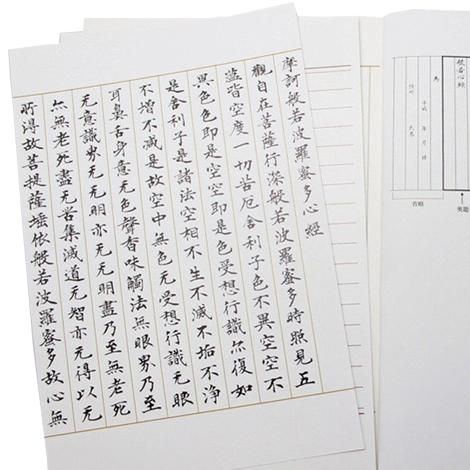 摩訶般若波羅蜜多心経
觀自在菩薩行深般若波羅蜜多時照見五
蘊皆空度一切苦厄舎利子色不異空空不
異色色即是空空即是色受想行識亦復如
是舎利子是諸法空相不生不滅不垢不浄
不增不減是故空中無色无受想行識无眼
耳鼻舌身意无色聲香味觸法無眼界乃至
无意識界无无明亦无无明盡乃至無老死
亦無老死盡无苦集滅道无智亦无得以无
所得故菩提薩埵依般若波羅蜜多故心無
般若心経
為
平成 年 月 日
奥題